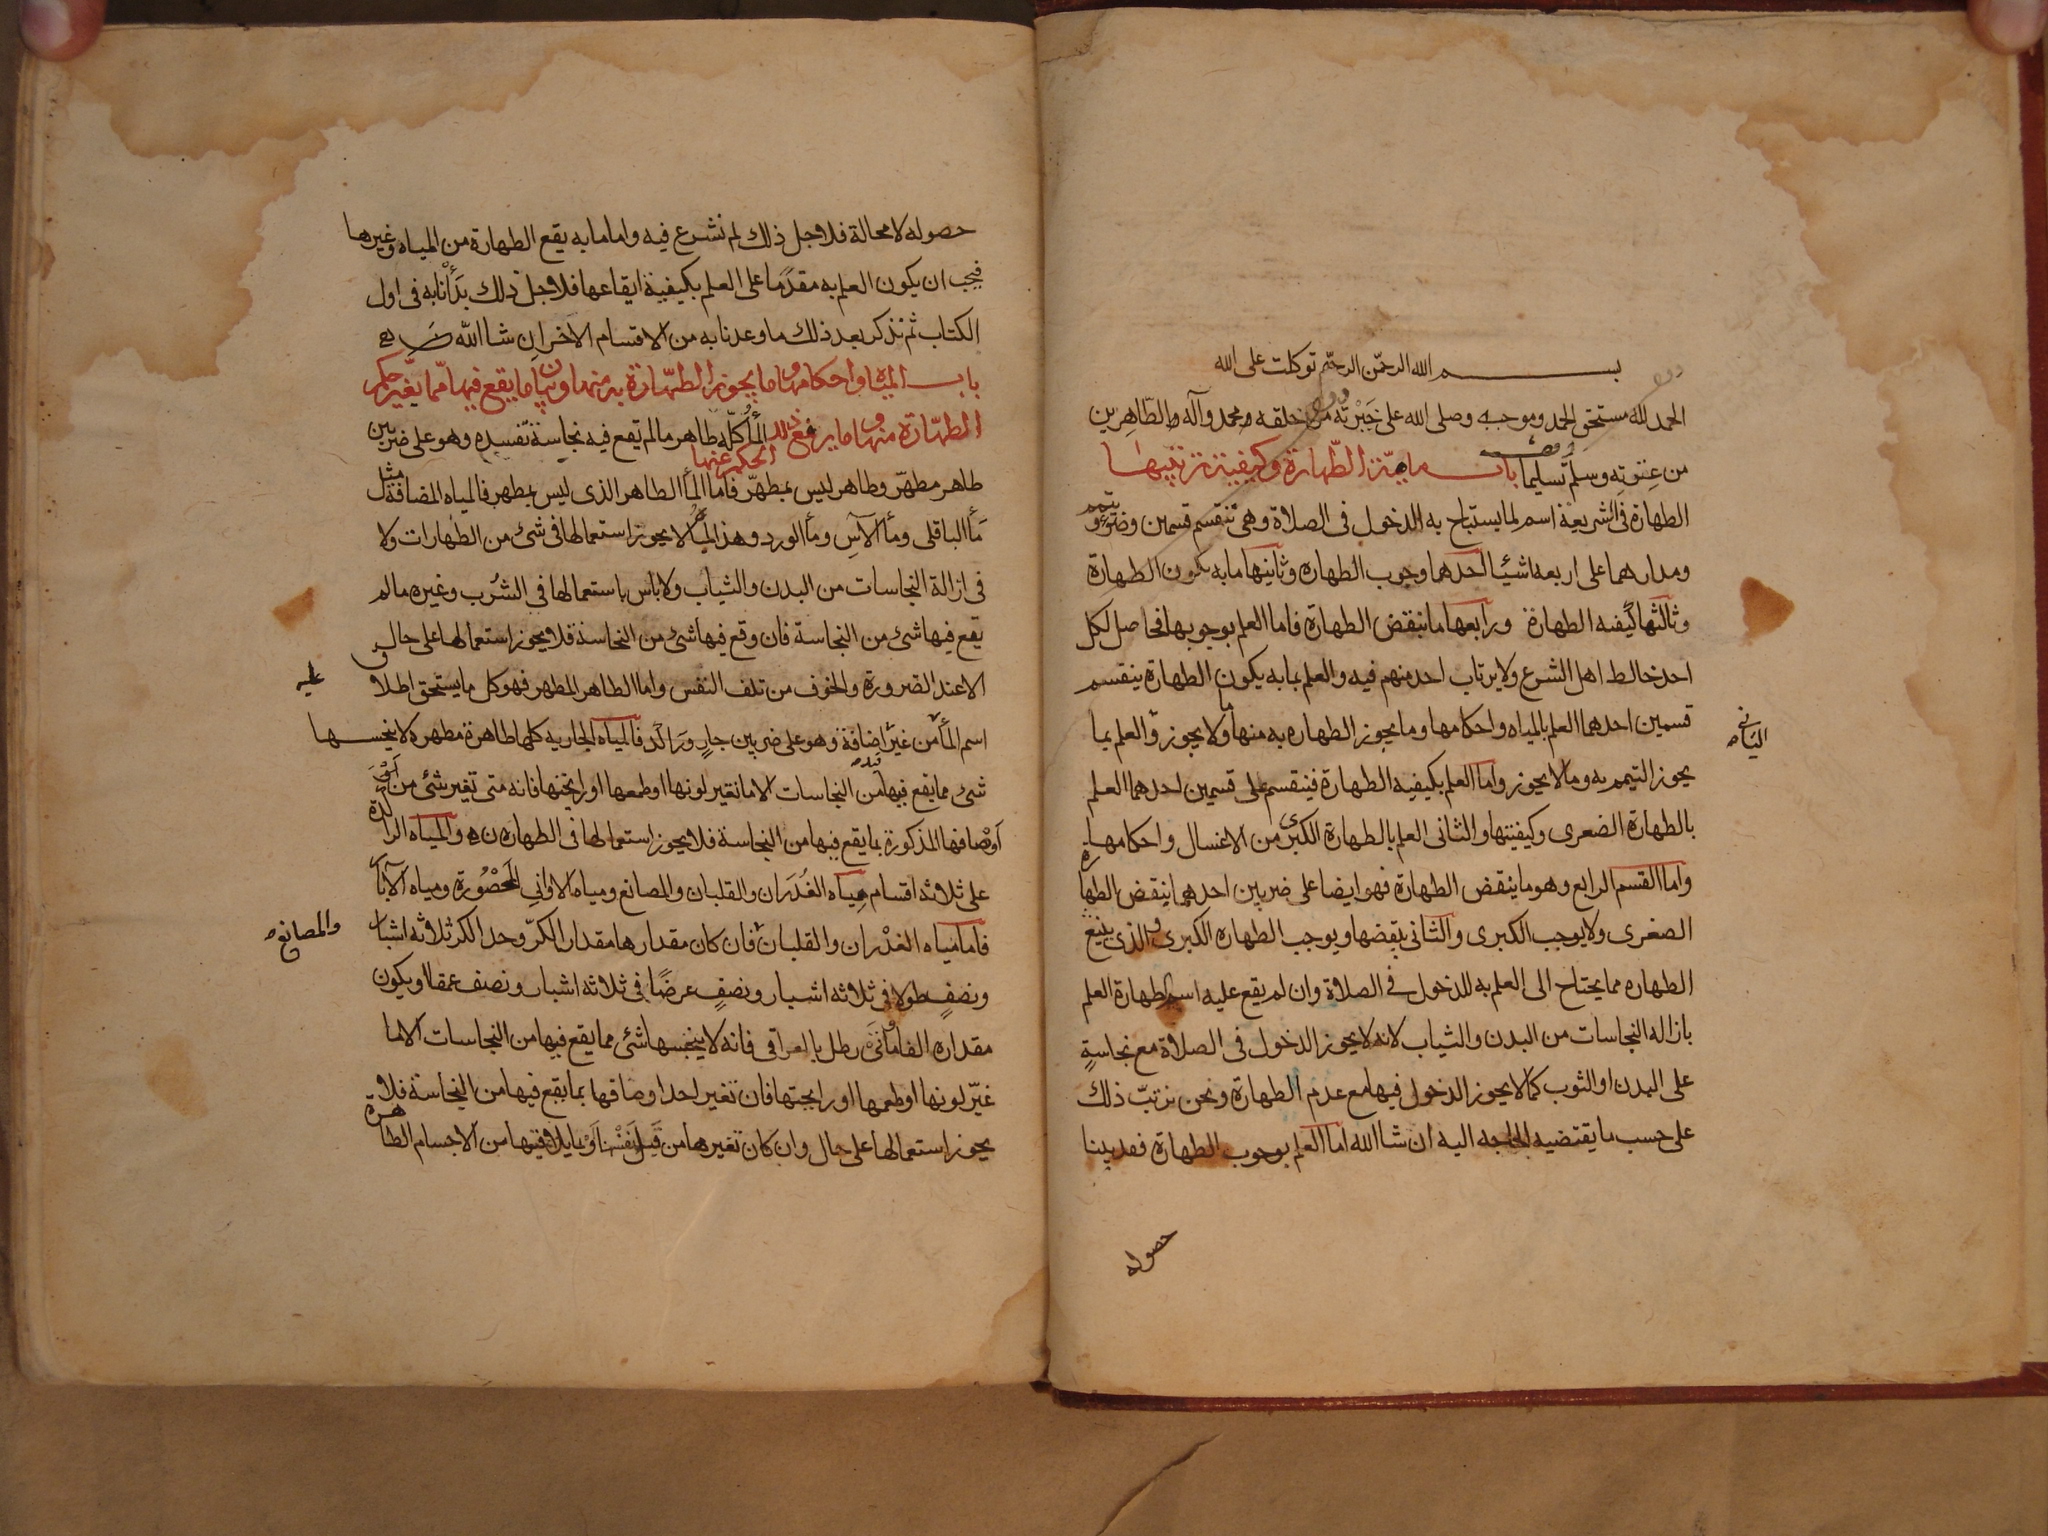 بســـم الله الرحمن الرحيم توكلت على الله
الحمد لله مستحق الحمد وموجبه وصلى الله على خيرته من خلقه محمد وآله الطاهرين
من عترته وسلم تسليما باب ماهية الطهارة وكيفية ترتيبها
الطهارة فى الشريعة اسم لما يستباح به الدخول فى الصلاة وهى تنقسم قسمين وضوء وتيمم
ومدارهما على اربعه اشيا احدهما وجوب الطهاره وثانيها ما به يكون الطهارة
وثالثها كيفيه الطهارة ورابعها ما ينقض الطهارة فاما العلم بوجوبها فحاصل لكل
احد خالط اهل الشرع ولا يرتاب احد منهم فيه والعلم بما به يكون الطهارة ينقسم
قسمين احدهما العلم بالمياه واحكامها وما يجوز الطهاره به منها وما لا يجوز والعلم بما
الثانى
يجوز التيمم به وما لا يجوز واما العلم بكيفيه الطهارة فينقسم على قسمين احدهما العلم
بالطهارة الصغرى وكيفيتها والثانى العلم بالطهارة الكبرى من الاغسال واحكامها
واما القسم الرابع وهو ما ينقض الطهارة فهو ايضا على ضربين احدهما ينقض الطهارة
الصغرى ولا يوجب الكبرى والثانى ينقضها ويوجب الطهاره الكبرى والذى يتبع
الطهاره مما يحتاج الى العلم به للدخول فى الصلاة وان لم يقع عليه اسم الطهارة العلم
بازاله النجاسات من البدن والثياب لانه لا يجوز الدخول فى الصلاة مع نجاسةٍ
على البدن او الثوب كما لا يجوز الدخول فيها مع عدم الطهارة ونحن نرتبّ ذلك
على حسب ما يقتضيه الحاجه اليه ان شا الله اما العلم بوجوب الطهارة فقد بينا
حصوله
حصوله لا محالة فلاجل ذلك لم نشرع فيه واما ما به يقع الطهارة من المياه وغيرها
فيجب ان يكون العلم به مقدّما على العلم بكيفية ايقاعها فلاجل ذلك بدأنا به فى اول
الكتاب ثم نذكر بعد ذلك ما وعدنا به من الاقسام الاخر ان شا الله
باب المياه واحكامها وما يجوز الطهارة به منها وبيان ما يقع فيها مما يغير حكم
الطهارة منها وما يرفع ذلك الحكم عنها المأ كله طاهر ما لم تقع فيه نجاسة تفسده وهو على ضربين
طاهر مطهّر وطاهر ليس بمطهّر فاما المأ الطاهر الذى ليس بمطهر فالمياه المضافة مثل
مأ الباقلى ومأ الآس ومأ الورد وهذ المياه لا يجوز استعمالها فى شئ من الطهارات ولا
فى ازالة النجاسات من البدن والثياب ولا باس باستعمالها فى الشرب وغيره ما لم
تقع فيها شئ من النجاسة فان وقع فيها شئ من النجاسة فلا يجوز استعمالها على حال
الا عند الضرورة والخوف من تلف النفس واما الطاهر المطهر فهو كل ما يستحق اطلاق
عليه
اسم المأ من غير اضافة وهو على ضربين جارٍ وراكد فالمياه الجاريه كلها طاهرة مطهره لا ينجسها
شئ مما يقع فيها من النجاسات الا ما تغير لونها او طعمها او رايحتها فانه متى تغير شئ من
اوصافها المذكورة بما يقع فيها من النجاسة فلا يجوز استعمالها فى الطهاره والمياه الراكدة
على ثلاثه اقسام مياه الغدران والقلبان والمصانع ومياه الاوانى المحصورة ومياه الآبار
فاما مياه الغدران والقلبان فان كان مقدارها مقدار الكر وحد الكر ثلاثه اشبار
والمصانع
ونصفٍ طولا فى ثلاثه اشبار ونصفٍ عرضًا فى ثلاثه اشبار ونصف عمقا او يكون
مقداره الفا ومائتى رطل بالعراقى فانه لا ينجسها شئ مما يقع فيها من النجاسات الا ما
غيّر لونها او طعمها او رايحتها فان تغير احد اوصافها بما يقع فيها من النجاسة فلا
يجوز استعمالها على حال وان كان تغيرها من قبل نفسها او بما يلاقيها من الاجسام الطاهرة